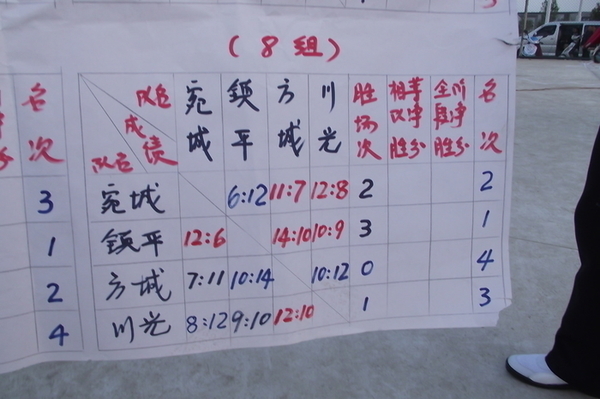 (8组)
名次
3
1
2
4
队名 成绩 队名 宛城 镇平 方城 川光 胜场次 相等队净胜分 全部净胜分 名次
宛城 6:12 11:7 12:8 2 2
镇平 12:6 14:10 10:9 3 1
方城 7:11 10:14 10:12 0 4
川光 8:12 9:10 12:10 1 3